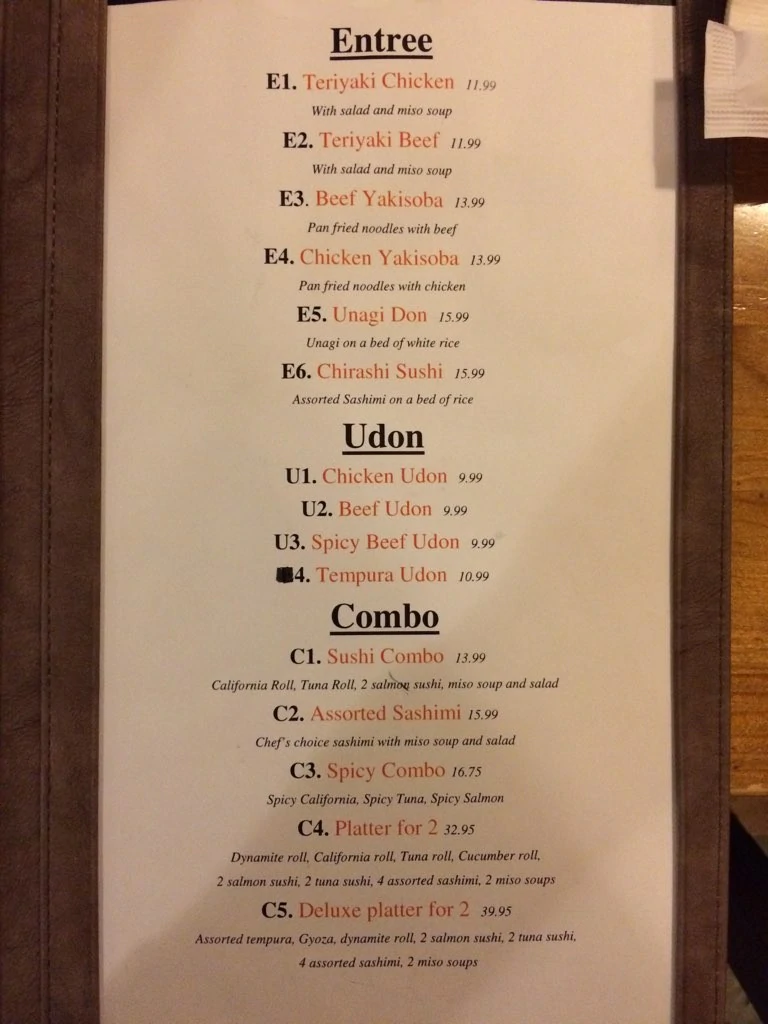 Entree
E1. Teriyaki Chicken 11.99
With salad and miso soup
E2. Teriyaki Beef 11.99
With salad and miso soup
E3. Beef Yakisoba 13.99
Pan fried noodles with beef
E4. Chicken Yakisoba 13.99
Pan fried noodles with chicken
E5. Unagi Don 15.99
Unagi on a bed of white rice
E6. Chirashi Sushi 15.99
Assorted Sashimi on a bed of rice
Udon
U1. Chicken Udon 9.99
U2. Beef Udon 9.99
U3. Spicy Beef Udon 9.99
4. Tempura Udon 10.99
Combo
C1. Sushi Combo 13.99
California Roll, Tuna Roll, 2 salmon sushi, miso soup and salad
C2. Assorted Sashimi 15.99
Chef's choice sashimi with miso soup and salad
C3. Spicy Combo 16.75
Spicy California, Spicy Tuna, Spicy Salmon
C4. Platter for 2 32.95
Dynamite roll, California roll, Tuna roll, Cucumber roll,
2 salmon sushi, 2 tuna sushi, 4 assorted sashimi, 2 miso soups
C5. Deluxe platter for 2 39.95
Assorted tempura, Gyoza, dynamite roll, 2 salmon sushi, 2 tuna sushi,
4 assorted sashimi, 2 miso soups